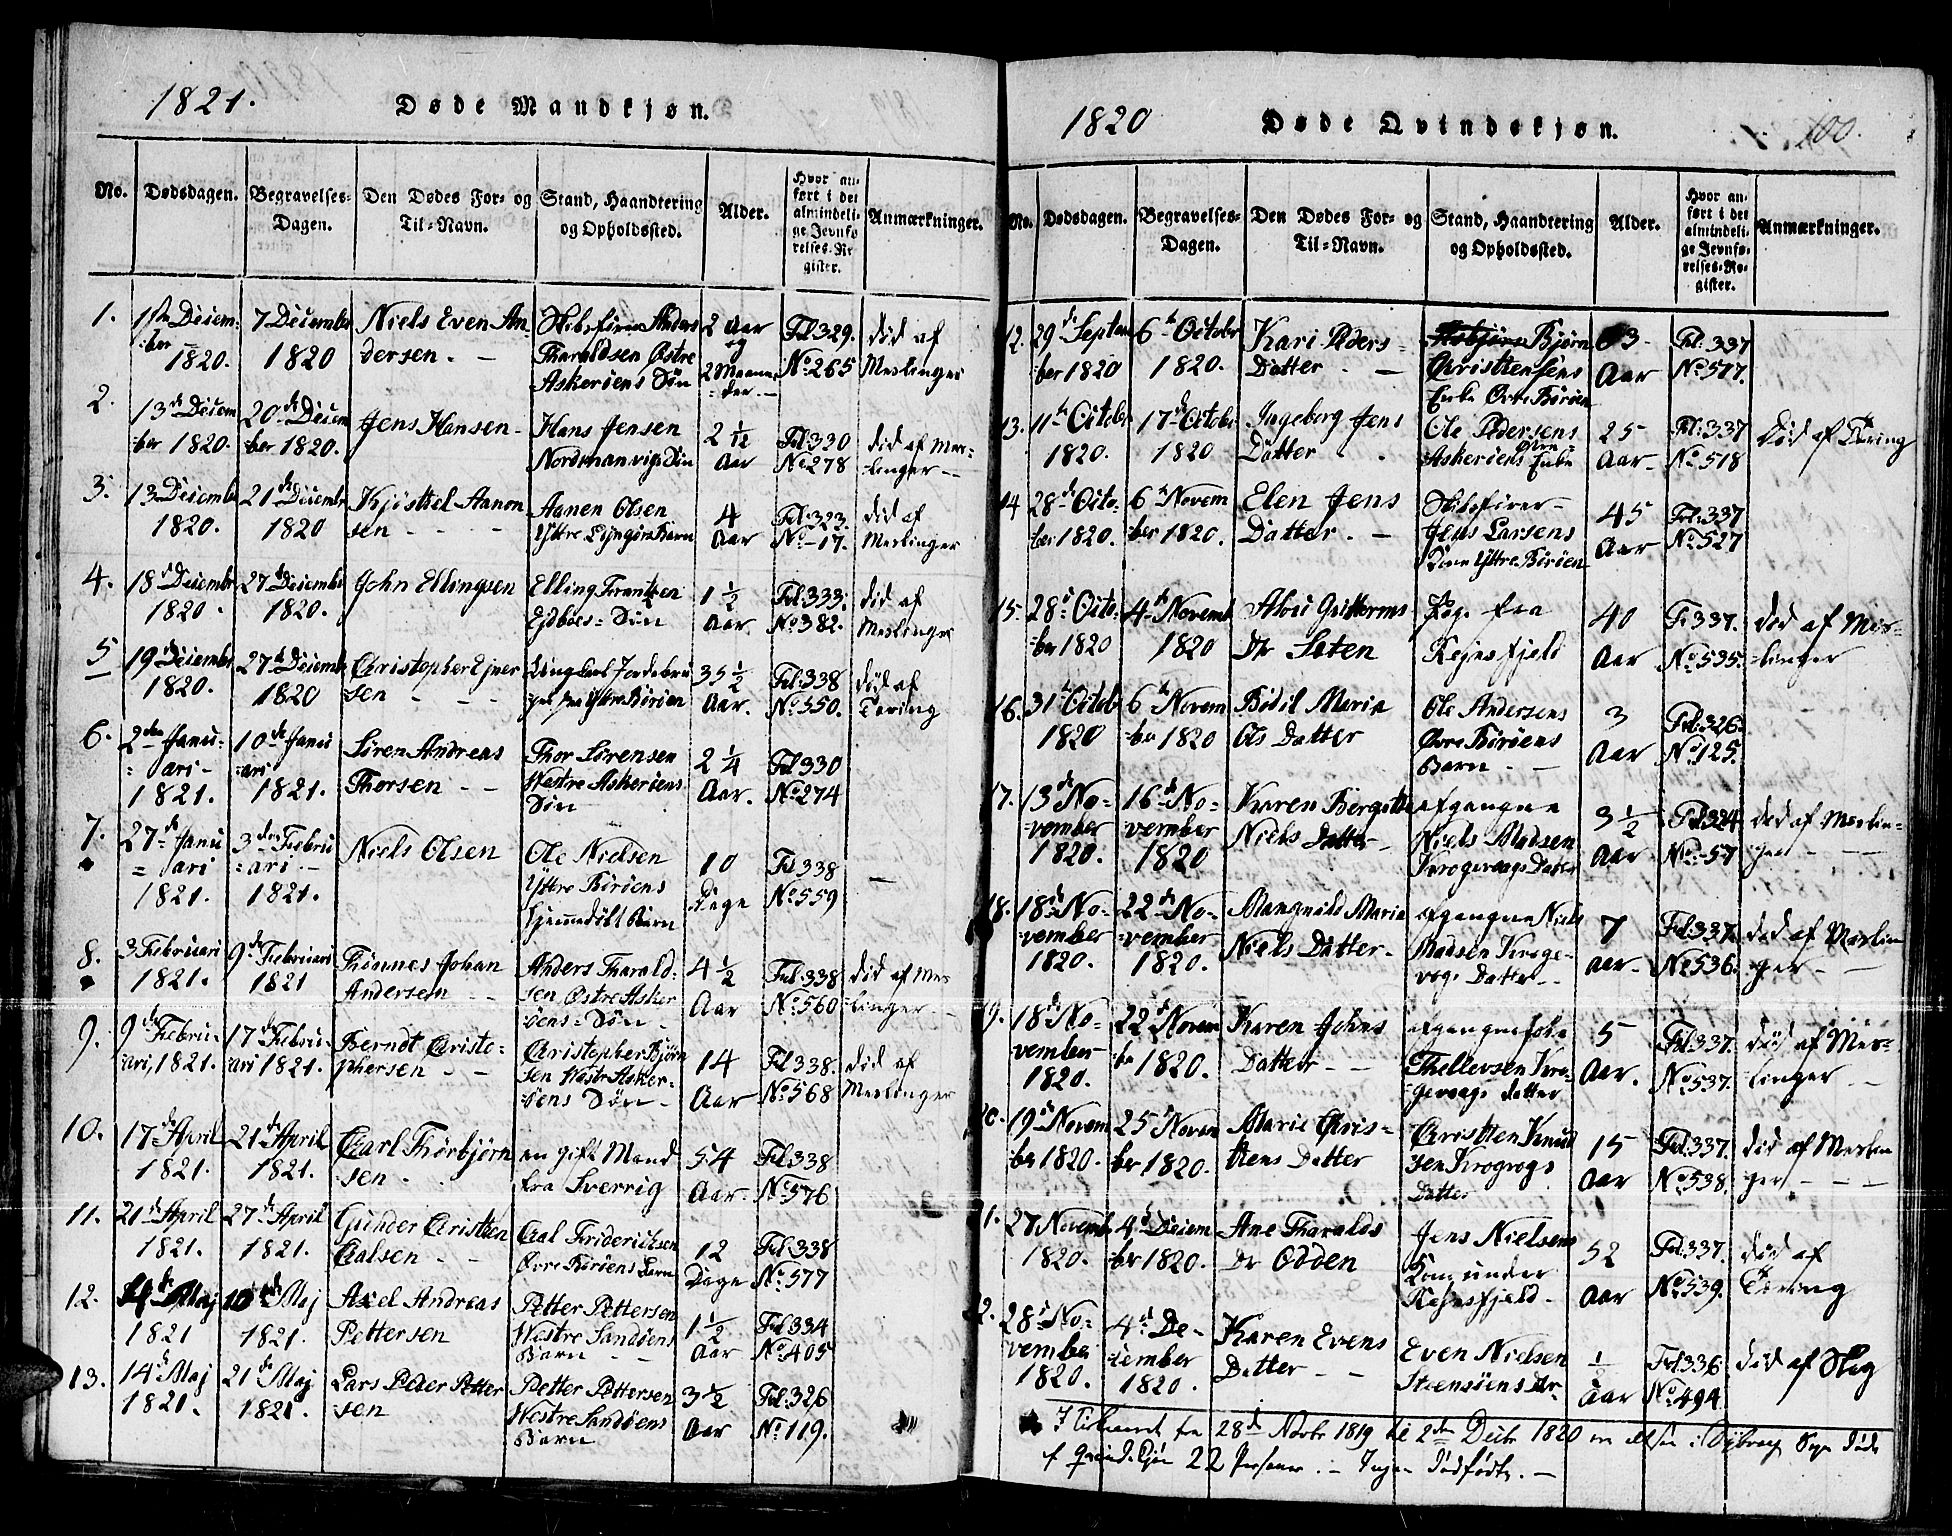 1821.
Døde Mandkjøn.
No.
Dødsdagen.
Begravelses-
Dagen.
Den Dødes For- og
Til-Navn.
Stand, Haandtering
og Opholdssted.
Alder.
Hvor an-
ført i det
almindeli-
ge Jevnfø-
relses-Re-
gister.
Anmærkninger.
1.
1ste Decem-
ber
1820.
7 December
1820
Niels Even An-
dersen. -
Anders
Tharaldsen Østre
Askerøens Søn
2 Aar
og
2 Maane-
der. -
Fol 329.
No 265
død af
Meslinger
2.
13de Decem
ber 1820.
20de Decem
ber 1820.
Jens Hansen -
Hans Jensen
Nordmanvigs Søn
2 1/12
Aar
Fol: 330
No 278
død af Mes-
linger -
3.
13 Decembr
1820.
21de Decembr
1820
Kjøstel Aanon
sen - - -
Aanen Olsen
Yttre Lyngørs Barn
4
Aar
Fol: 323.
No -17.
død af
Meslinger
4.
18d Decembr
1820.
27de Decembr
1820.
John Ellingsen
Elling Frantzen
Eydbøes - Søn
1 1/2
Aar.
Fol: 333.
No 382.
død af
Meslinger
5
19 Decembr
1820.
27de Decemb
1820
Christopher Ejner
sen - - -
fra Yttre Børøen
35 1/2
Aar.
Fol: 338
No 550.
død af
Tæring
6.
2den Janu-
ari -
1821.
10de Janu
ari
1821.
Søren Andreas
Thorsen - -
Thor Sørensen
Westre Askerøens
Søn
2 1/4
Aar.
Fol 330
No 274
7.
27de Janu
ari
1821.
3die Febru
ari. -
1821.
Niels Olsen
Ole Nielsen
Yttre Børøens
hjemmedøbt Barn
10
Dage
Fol 338
No 559
-
8.
3 Februari
1821.
9de Februari
1821
Thønnes Johan
Andersen - -
Anders Tharald-
sen Østre Asker
øens - Søn -
4 1/2
Aar
Fol: 338
No 560
død af Mes
linger -
9.
9de Febru-
ari, 1821.
17de Febru-
ari 1821.
Berndt Christo-
phersen - -
Christopher Bjørn
sen Westr Asker-
øens Søn -
14
Aar
Fol 338.
No 568
død af
Meslinger
10.
17de April
1821.
21de April
1821.
Carl Thorbjørn
sen -
en gift Mand
fra Sverrig
54
Aar.
Fol 338
No 576
11.
21de April
1821.
27de April
1821.
Gunder Christen
Aalsen - -
Aal Friderichsen
Øvre Børøens Barn
12
Dage
Fol: 338
No 577
12.
Maj
1821
10de Maj
1821.
Axel Andreas
Pettersen
Petter Pettersen
Westre Sandøens
Barn -
1 1/2
Aar
Fol: 334
No 405
13.
14de Maj
1821.
21de Maj
1821.
Lars Peder Petter
sen
Petter Pettersen
Westre Sandøens
Barn
3 1/2
Aar
Fol: 326
No 119.
1820
Døde Qvindekjøn.
100.
No.
Dødsdagen.
Begravelses-
Dagen.
Den Dødes For- og
Til-Navn.
Stand, Haandtering
og Opholdssted.
Alder.
Hvor an-
ført i det
almindeli-
ge Jevnfø-
relses-Re-
gister.
Anmærkninger.
12.
29de Septem
ber 1820
6te Octobr
1820.
Kari Peders-
Datter - -
Bjørn
Christensens
Enke Øvre Børøen
63
Aar
Fol: 337
No 517.
13.
11te Octobr
1820.
17de Octobr
1820
Ingeborg Jens
Datter
Ole Pedersens
Øvre
Askerøens Enke
25
Aar -
Fol: 337
No 518
Død af Tæring
14
28de Octo-
ber 1820.
6te Novem
ber 1820.
Elen Jens
Datter. -
Jens Larsens
Yttre Børøen
45
Aar
Fol: 337
No 527
15.
28d Octo-
ber 1820
4de Novemb
1820
Dtr Seten
fra
Rejnsfjeld
40
Aar
Fo 337.
No 535.
død af Mes-
linger
16.
31te Octobr
1820
6te Novem
ber 1820
Bodil Maria
Ols Datter
Ole Andersens
Øvre Børøens
Barn -
3
Aar
Fol: 326.
No 125.
17.
13de No-
vember
1820.
16de No-
vember
1820
Karen Børgitte
Niels Datter -
afgangne
Niels Madsen
Krogevogs Datter
3 1/2
Aar
Fol 324
No -57
død af Meslin-
ger - - -
18.
18d No-
vember
1820.
22de No-
vember
1820.
Mangnild Maria
Niels Datter -
afgangne Niels
Madsen Kroge-
vogs Datter -
7
Aar -
Fol: 337.
No 536.
død af Meslin
ger - -
19.
18de No-
vember
1820.
22d Novem
ber 1820.
Karen Johns
Datter - -
afgangne John
Thellevsen Kro-
gevogs datter
5
Aar.
Fol: 337.
No 537.
død af Mes-
linger - -
20.
19d Novem
ber 1820.
25d Novem
ber 1820.
Marie Chris-
tens Datter
Christten Knud
sen Krogvogs
Datter
15
Aar
Fol: 337.
No 538.
død af Meslin
ger - - -
21.
27 Novemb
1820.
4d Decem
ber 1820.
Ane Tharalds
Dr Odden
Jens Nielsens
Kone under
Rejnsfjeld -
52
Aar
Fol: 337.
No 539.
død af
Tæring
22.
28d No-
vember
1820.
4d De-
cember
1820.
Karen Evens
Datter - -
Even Nielsen
Steensøens Dr-
1/2
Aar
Fol: 336
No 494.
død af Slag
28de Novbr 1819 til 2den Decbr 1820
22 Personer. - Ingen dødfødte. -